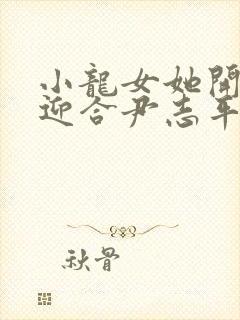 小龍女她開
迎合尹志平
秋骨